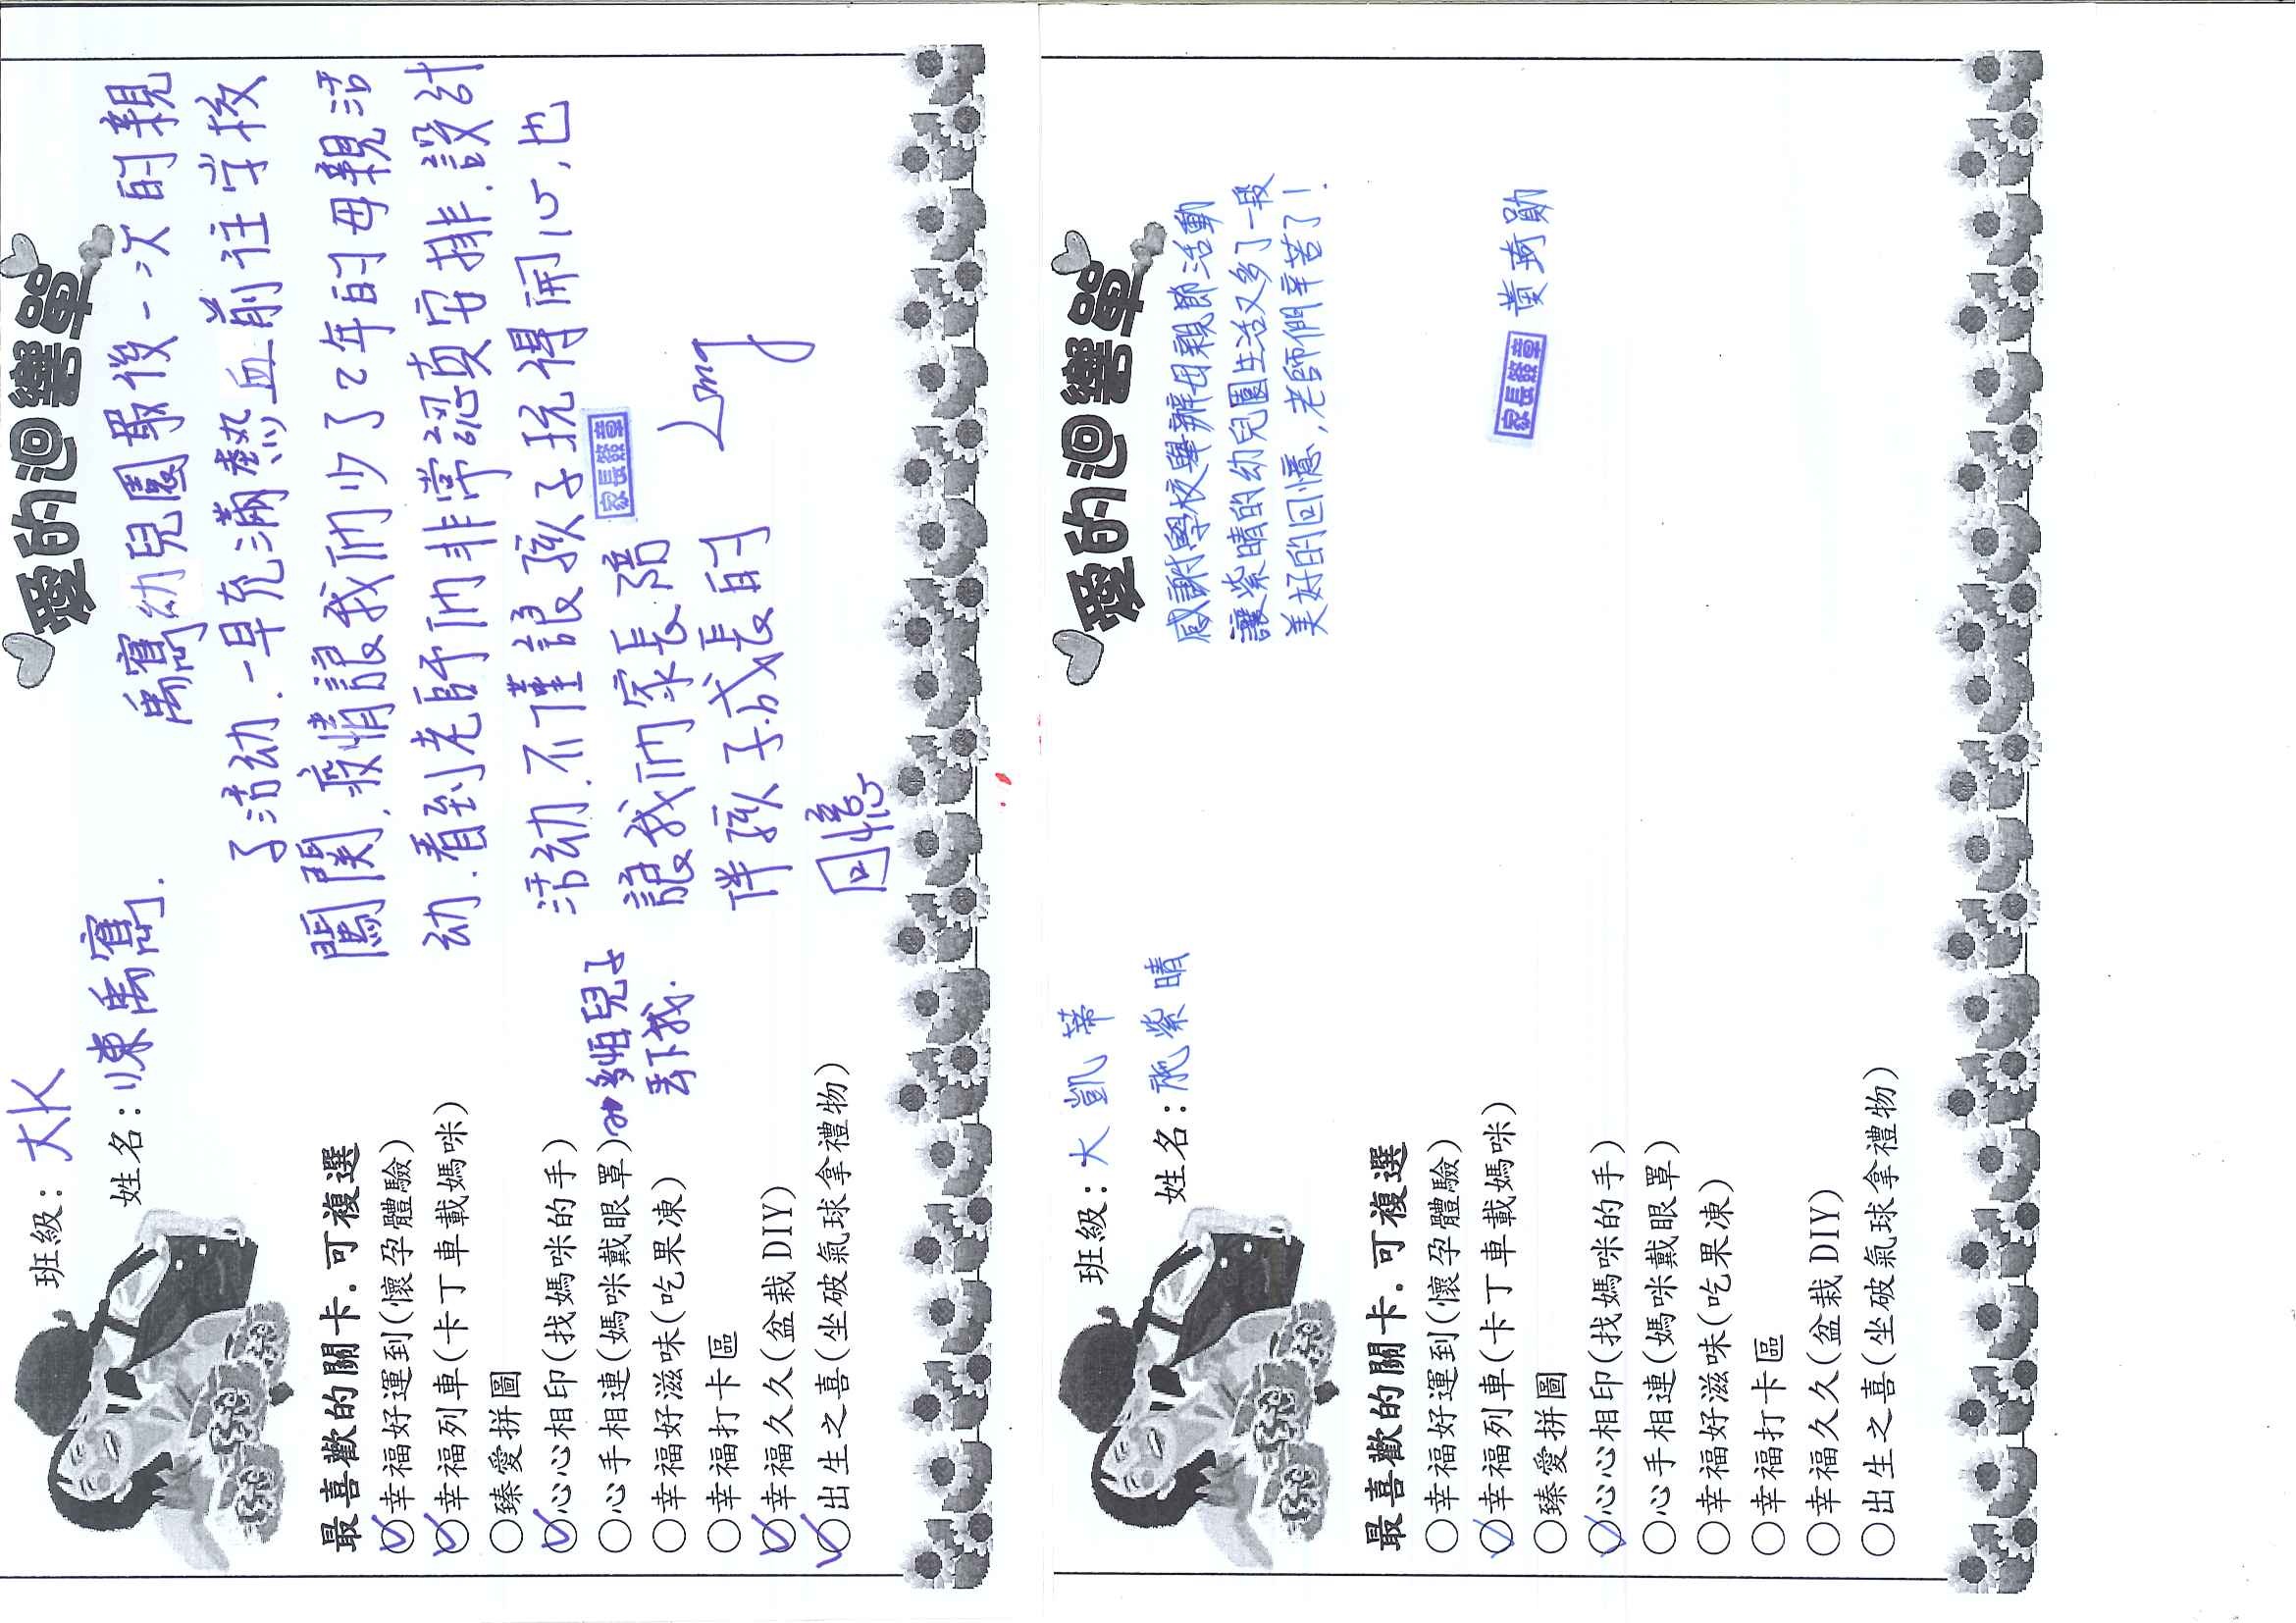 愛的迴響單
班級：大K
姓名：陳禹寯.
最喜歡的關卡.可複選
幸福好運到(懷孕體驗)
幸福列車(卡丁車載媽咪)
臻愛拼圖
心心相印(找媽咪的手)
心手相連(媽咪戴眼罩)
幸福好滋味(吃果凍)
幸福打卡區
幸福久久(盆栽DIY)
出生之喜(坐破氣球拿禮物)
怕兒子
丟下我.
禹寯幼兒園最後一次的親
子活动.一早充滿熱血前往学校
闖關.疫情讓我们少了2年的母親活
动.看到老師们非常認真安排.設計
活动.不僅讓孩子玩得開心,也
讓我们家長陪
伴孩子成長的
回憶
家長簽章
愛的迴響單
班級：大凱蒂
姓名：施紫晴
最喜歡的關卡.可複選
幸福好運到(懷孕體驗)
幸福列車(卡丁車載媽咪)
臻愛拼圖
心心相印(找媽咪的手)
心手相連(媽咪戴眼罩)
幸福好滋味(吃果凍)
幸福打卡區
幸福久久(盆栽DIY)
出生之喜(坐破氣球拿禮物)
感謝學校舉辦母親節活動
讓紫晴的幼兒園生活又多了一段
美好的回憶,老師們辛苦了!
家長簽章 黃琦勛